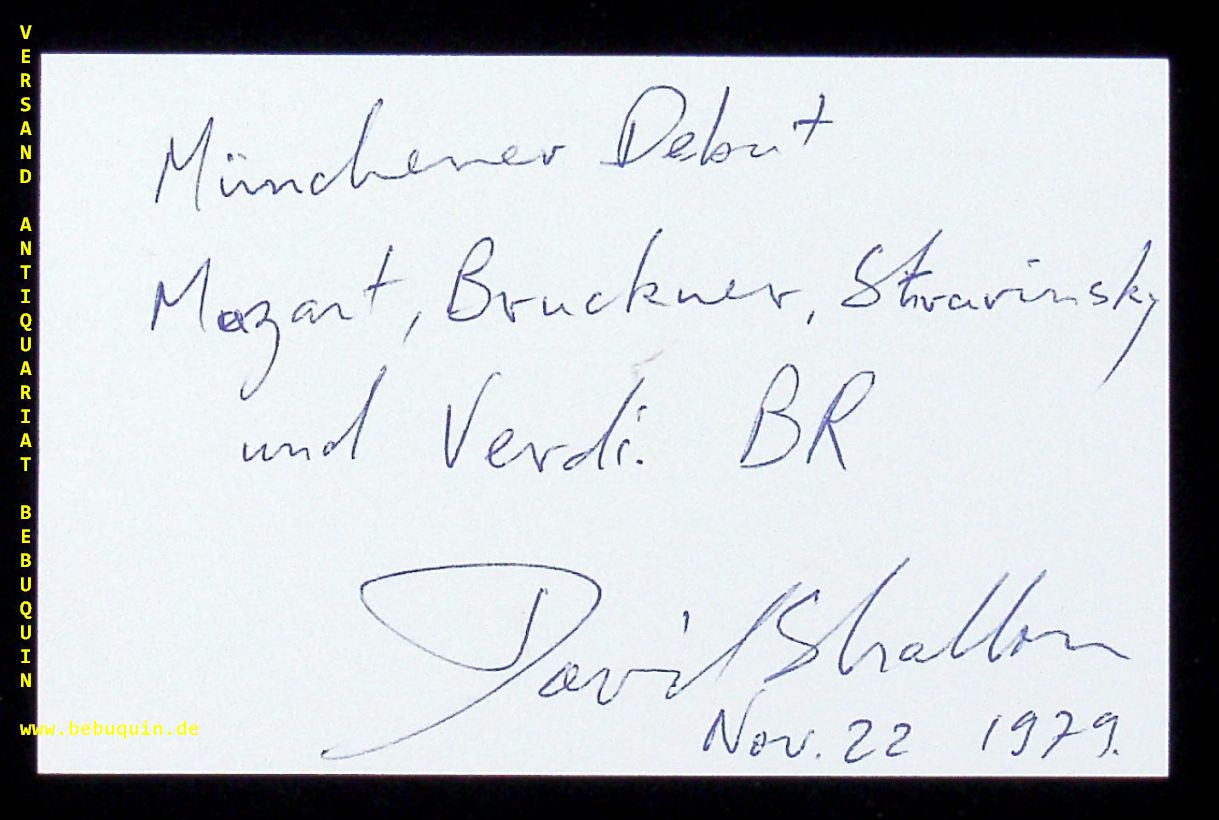 Münchener Debut
Mozart, Bruckner, Stravinsky
und Verdi. BR
David Shallon
Nov. 22 1979.
VERSAND ANTIQUARIAT BEBUQUIN
www.bebuquin.de